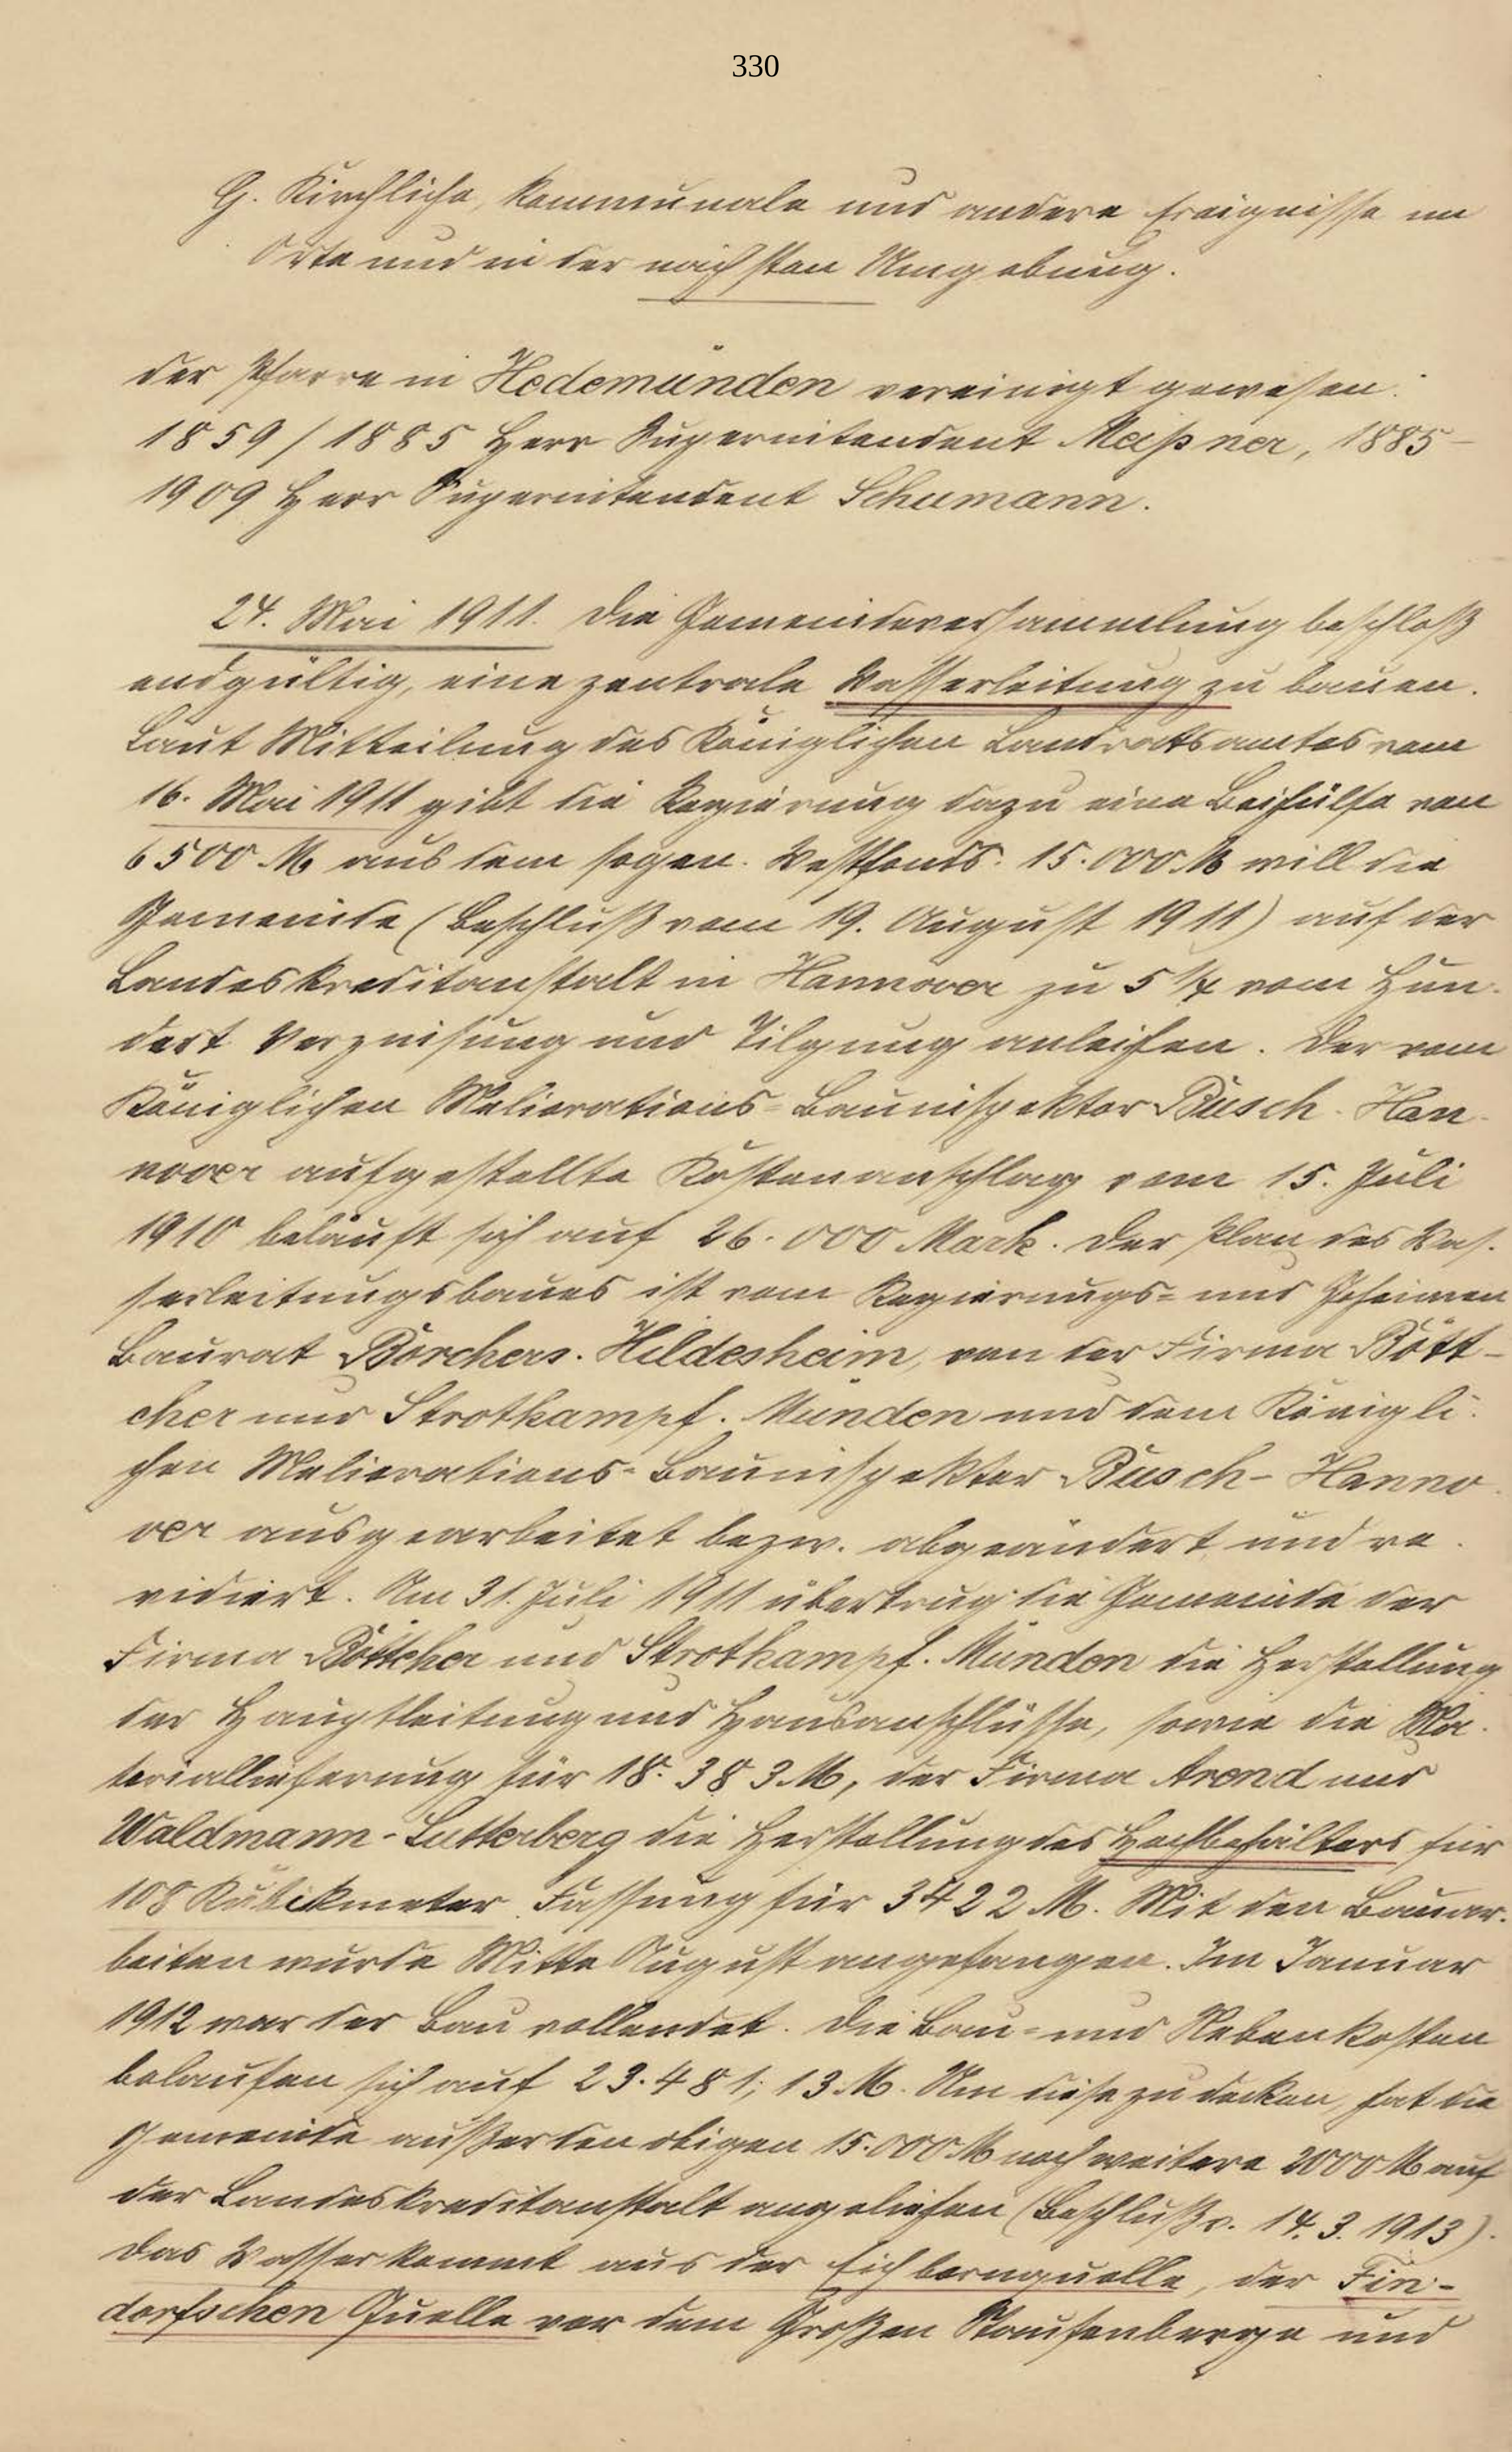 330
G. Kirchliche, kommunale und andere Ereignisse im
Orte und in der nächsten Umgebung.
der Pfarre in Hedemünden vereinigt gewesen:
1859/1885 Herr Superintendent Meißner, 1885-
1909 Herr Superintendent Schumann.
24. Mai 1911. Die Gemeindeversammlung beschloß
endgültig, eine zentrale Wasserleitung zu bauen.
Laut Mitteilung des Königlichen Landratsamtes vom
16. Mai 1911 gibt die Regierung dazu eine Beihülfe von
6500 M aus dem sogen. Westfonds. 15.000 M will die
Gemeinde (Beschluß vom 19. August 1911) auf der
Landeskreditanstalt in Hannover zu 5 1/4 vom Hun-
dert Verzinsung und Tilgung anleihen. Der vom
Königlichen Meliorations-Bauinspektor Busch-Han-
nover aufgestellte Kostenanschlag vom 15. Juli
1910 beläuft sich auf 26.000 Mark. Der Plan des Was-
serleitungsbaues ist vom Regierungs- und Geheimen
Baurat Borchers-Hildesheim, von der Firma Bött-
cher und Strotkampf-Münden und dem Königli-
chen Meliorations-Bauinspektor Busch-Hanno-
ver ausgearbeitet bezw. abgeändert und re-
vidiert. Am 31. Juli 1911 übertrug die Gemeinde der
Firma Böttcher und Strotkampf-Münden die Herstellung
der Hauptleitung und Hausanschlüsse, sowie die Ma-
teriallieferung für 18.383 M, der Firma Arend und
Waldmann-Lutterberg die Herstellung des Hochbehälters für
108 Kubikmeter Fassung für 3422 M. Mit den Bauar-
beiten wurde Mitte August angefangen. Im Januar
1912 war der Bau vollendet. Die Bau- und Nebenkosten
belaufen sich auf 23.481,13 M. Um diese zu decken, hat die
Gemeinde außer den obigen 15.000 M noch weitere 2000 M auf
der Landeskreditanstalt angeliehen (Beschluß v. 14.3.1913).
Das Wasser kommt aus der Eichbornquelle, der Fin-
dorfschen Quelle vor dem Großen Staufenberge und